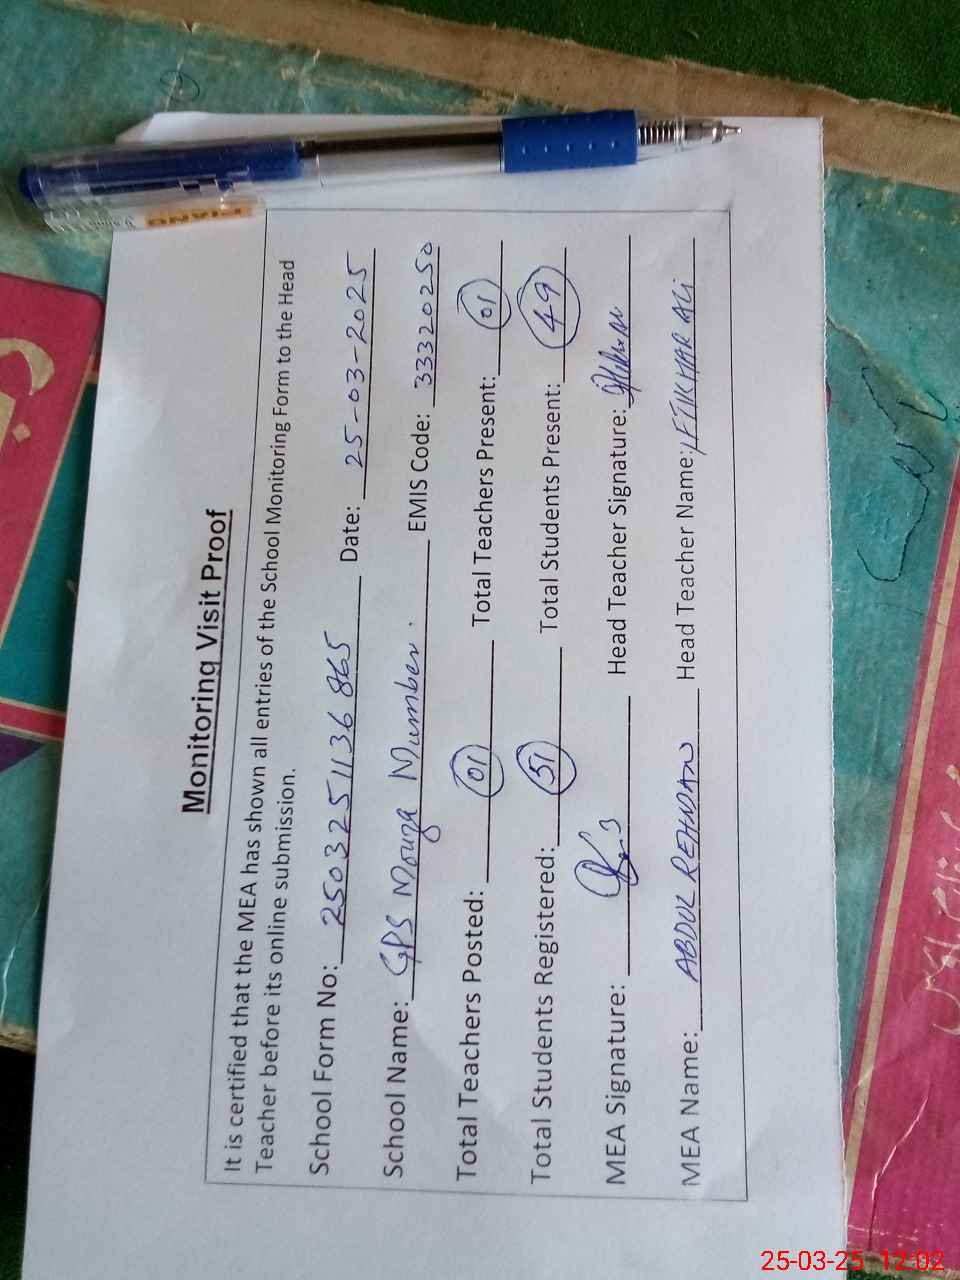 Monitoring Visit Proof
It is certified that the MEA has shown all entries of the School Monitoring Form to the Head
Teacher before its online submission.
School Form No: 2503251136865 Date: 25-03-2025
School Name: GPS Mouza Mumber. EMIS Code: 33320250
Total Teachers Posted: 01 Total Teachers Present: 01
Total Students Registered: 51 Total Students Present: 49
MEA Signature: Head Teacher Signature:
MEA Name: ABDUL REHMAN Head Teacher Name: IFTIKHAR ALI
PIANO
25-03-25 12:02